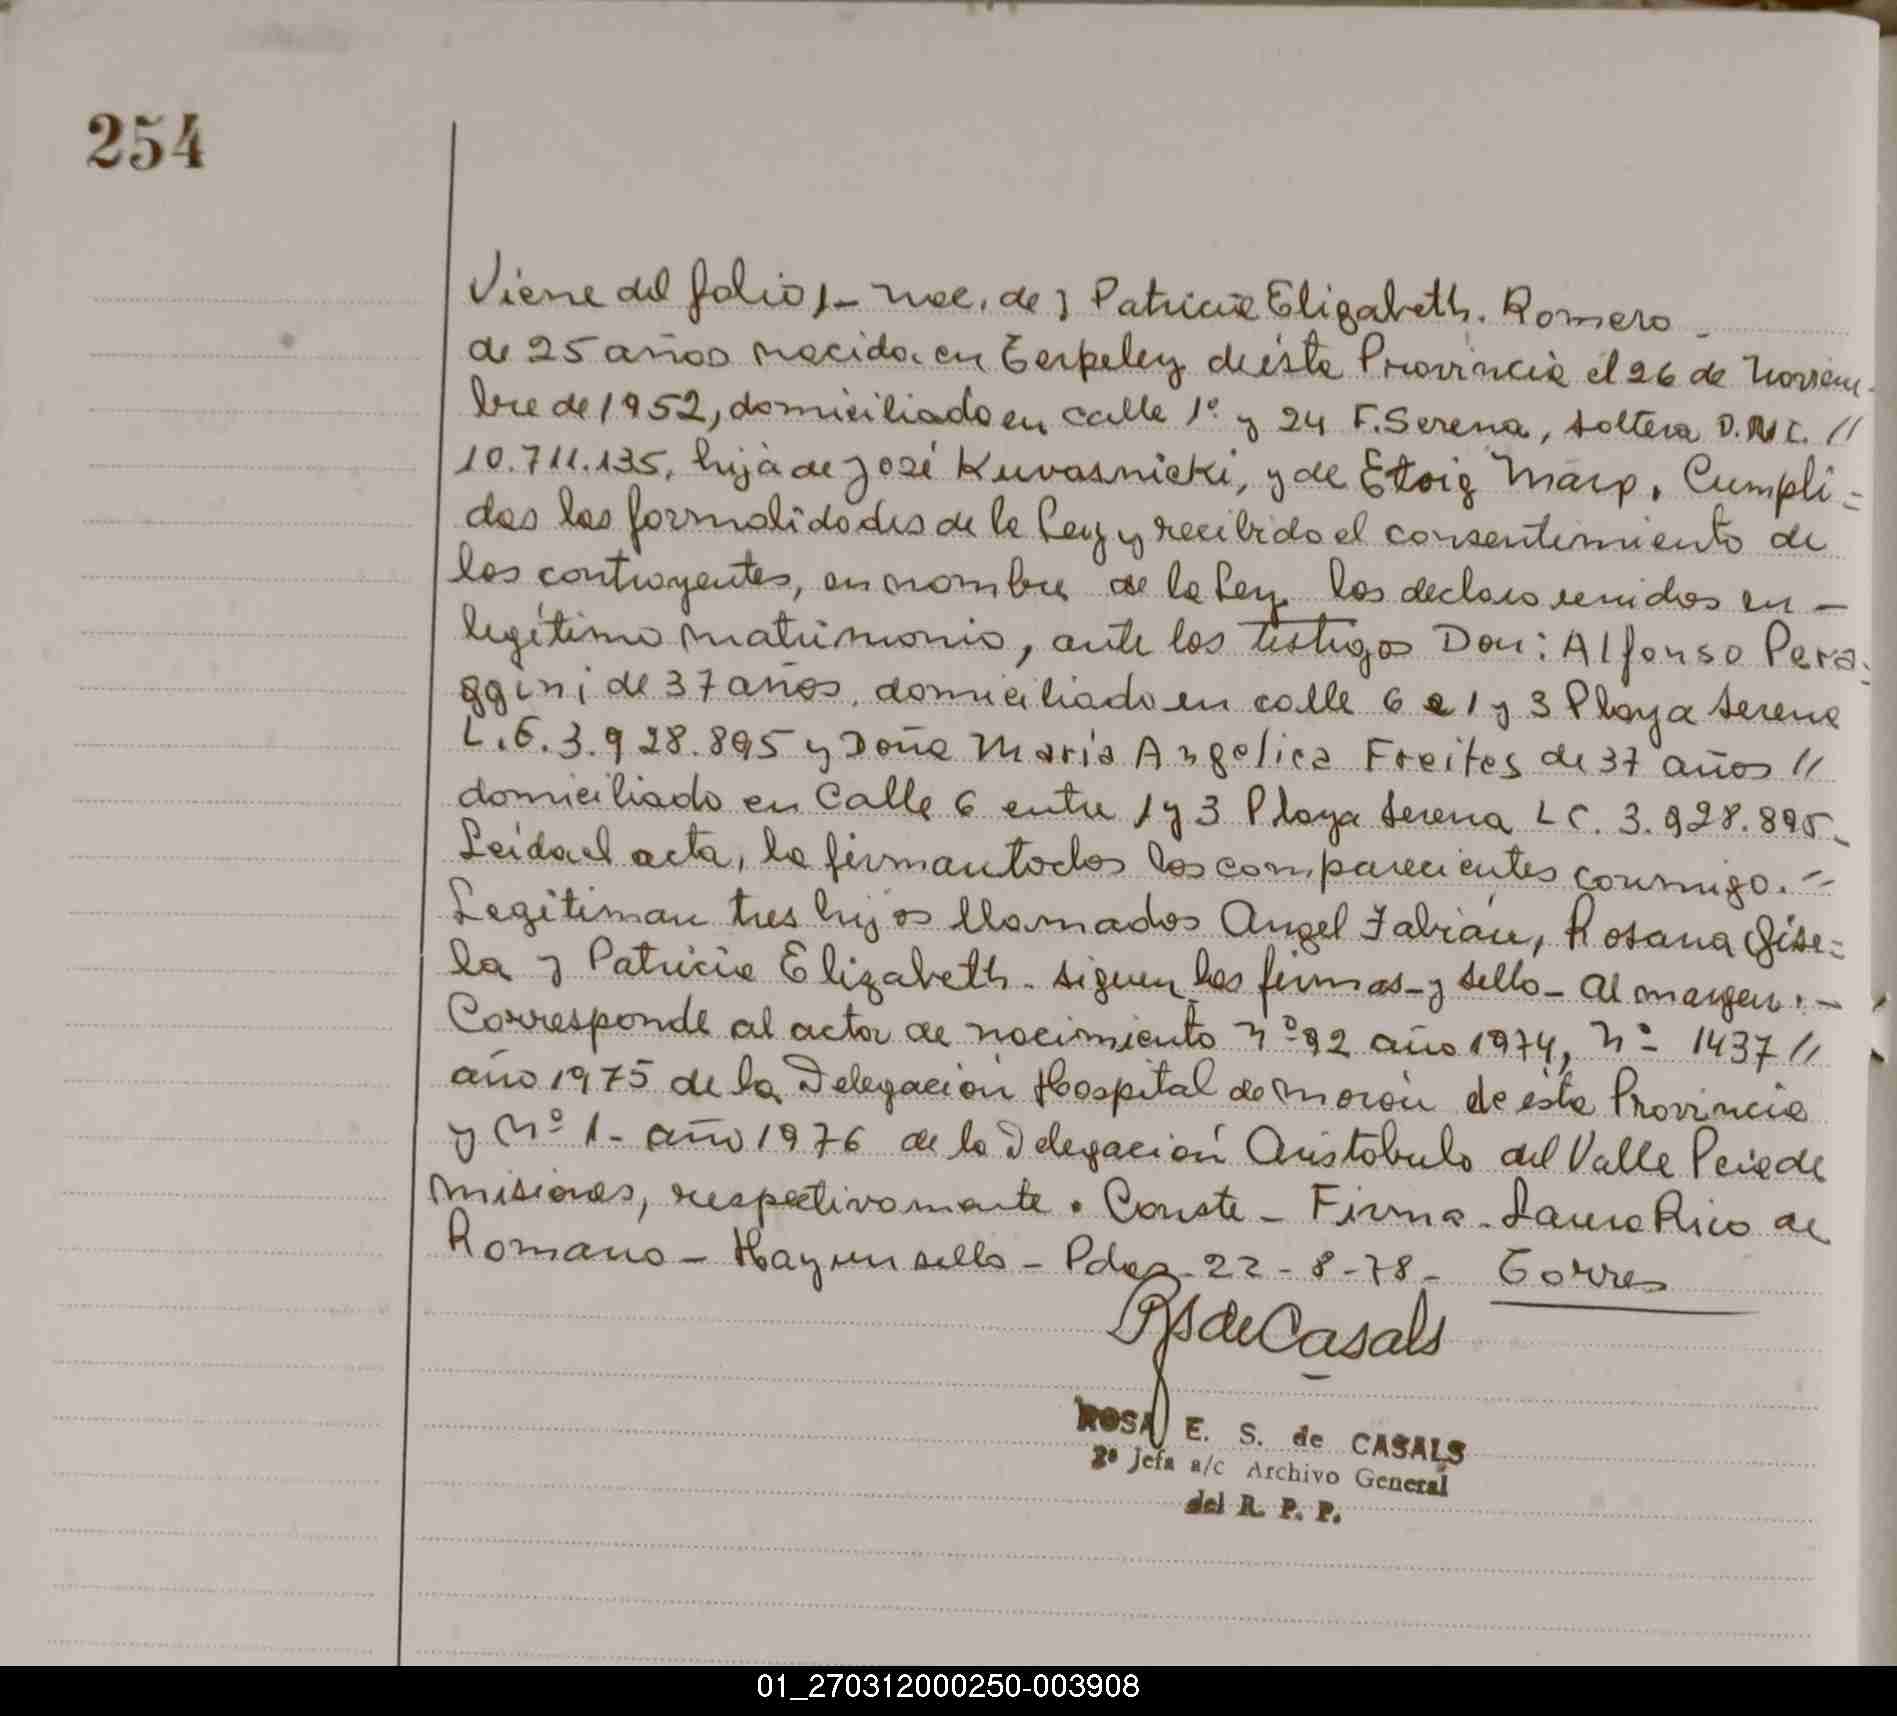 254
Viene del folio 1- nac. de } Patricia Elizabeth. Romero
de 25 años nacida en Berkeley de ésta Provincia el 26 de Noviem-
bre de 1952, domiciliado en calle 1º y 24 F. Serena, soltera D.N.I. //
10.711.135, hija de José Kuvasnicki, y de Marp. Cumpli=
das las formalidades de la Ley y recibido el consentimiento de
los contrayentes, en nombre de la Ley los declaro unidos en -
legítimo matrimonio, ante los testigos Don: Alfonso Pera-
ggini de 37 años, domiciliado en calle 6 e 1 y 3 Playa Serena
L.E. 3.928.895 y Doña Maria Angelica Freites de 37 años //
domiciliado en Calle 6 entre 1 y 3 Playa Serena LC. 3.928.895-
Leída el acta, la firman todos los comparecientes conmigo. =
Legitiman tres hijos llamados Angel Fabián, Rosana Gise=
la y Patricia Elizabeth. siguen las firmas - y sello - Al margen. -
Corresponde al acta de nacimiento Nº 92 año 1974, Nº 1437 //
año 1975 de la Delegación Hospital de Morón de ésta Provincia
y Nº 1 - año 1976 de la Delegación Aristóbulo del Valle Pcia de
Misiones, respectivamente. Conste - Firma - Laura Rico de
Romano - Hay un sello - Pdas - 22 - 8 - 78 - Torres
RS de Casals
ROSA E. S. de CASALS
2ª Jefa a/c Archivo General
del R. P. P.
01_270312000250-003908